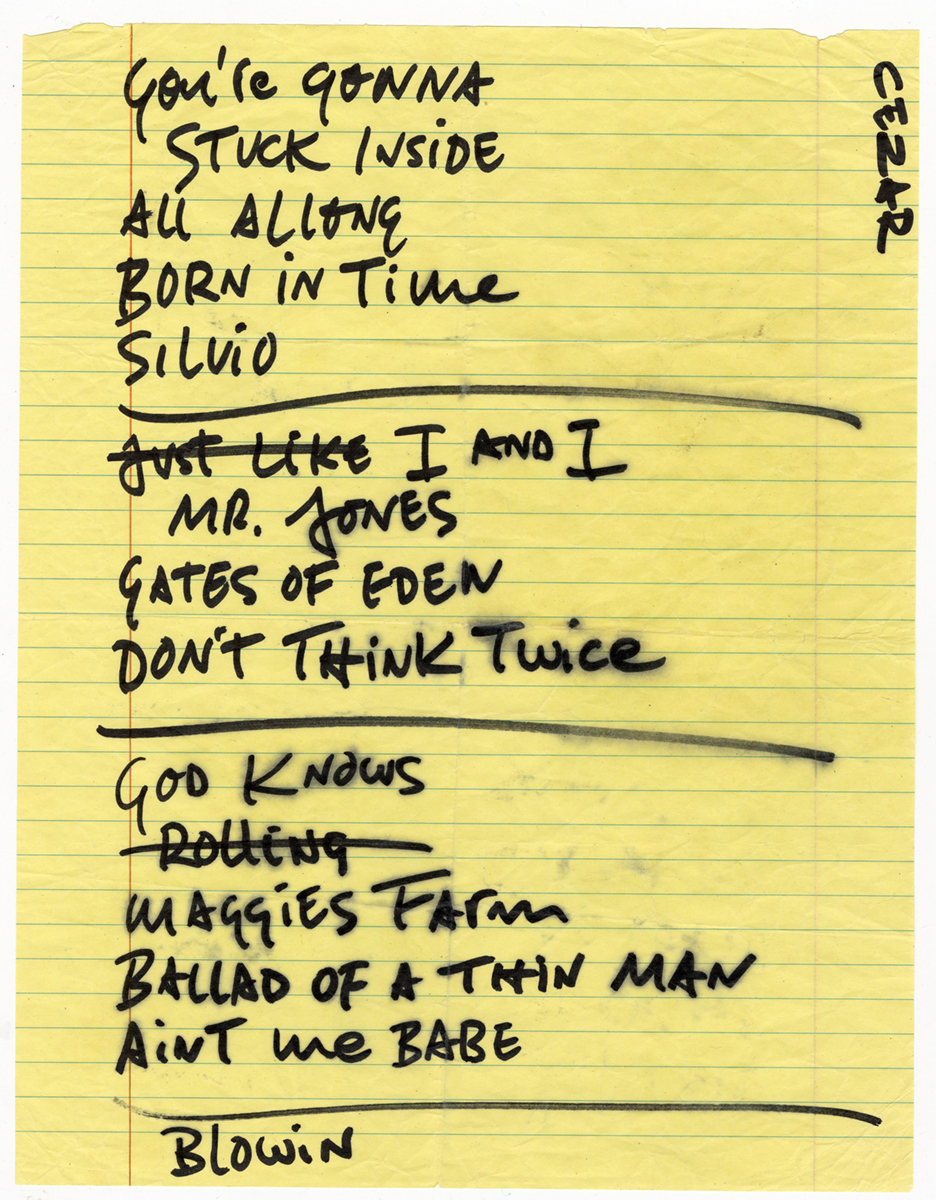 You're GONNA
STUCK INSIDE
ALL ALLONG
BORN iN Time
SILViO
Just LiKE I AND I
MR. JONES
GATES OF EDEN
DON'T THiNK Twice
GOD KNOWS
ROLLiNG
MAGGiES FARm
BALLAD OF A THiN MAN
AiNT me BABE
BLOWiN
CEZAR